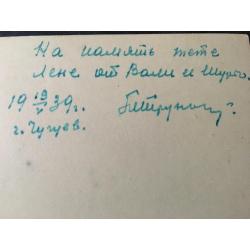 На память тете
Лене от Вали и Шуры.
19 19/V 39 г.
г. Чугуев.